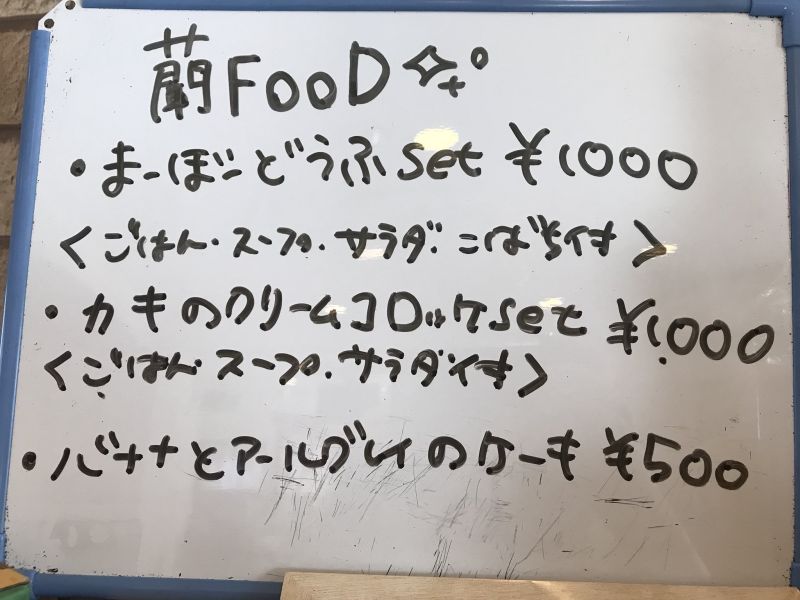 蘭FOOD
・まーぼーどうふset ¥1000
<ごはん・スープ・サラダ・こばち付き>
・カキのクリームコロッケset ¥1,000
<ごはん・スープ・サラダ付き>
・バナナとアールグレイのケーキ ¥500